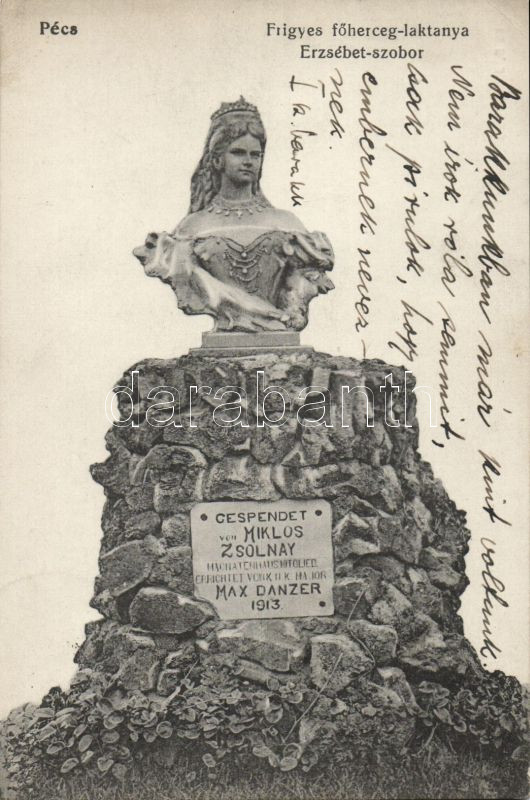 Pécs
Frigyes főherceg-laktanya
Erzsébet-szobor
Barakkunkban már kint voltunk.
Nem irok róla semmit,
csak pirulok, hogy
embernek nevez-
nek.
I k. barakk
darabanth
GESPENDET
von MIKLOS
ZSOLNAY
MAGNATENHAUSMITGLIED.
ERRICHTET VON K.U.K. MAJOR
MAX DANZER
1913.